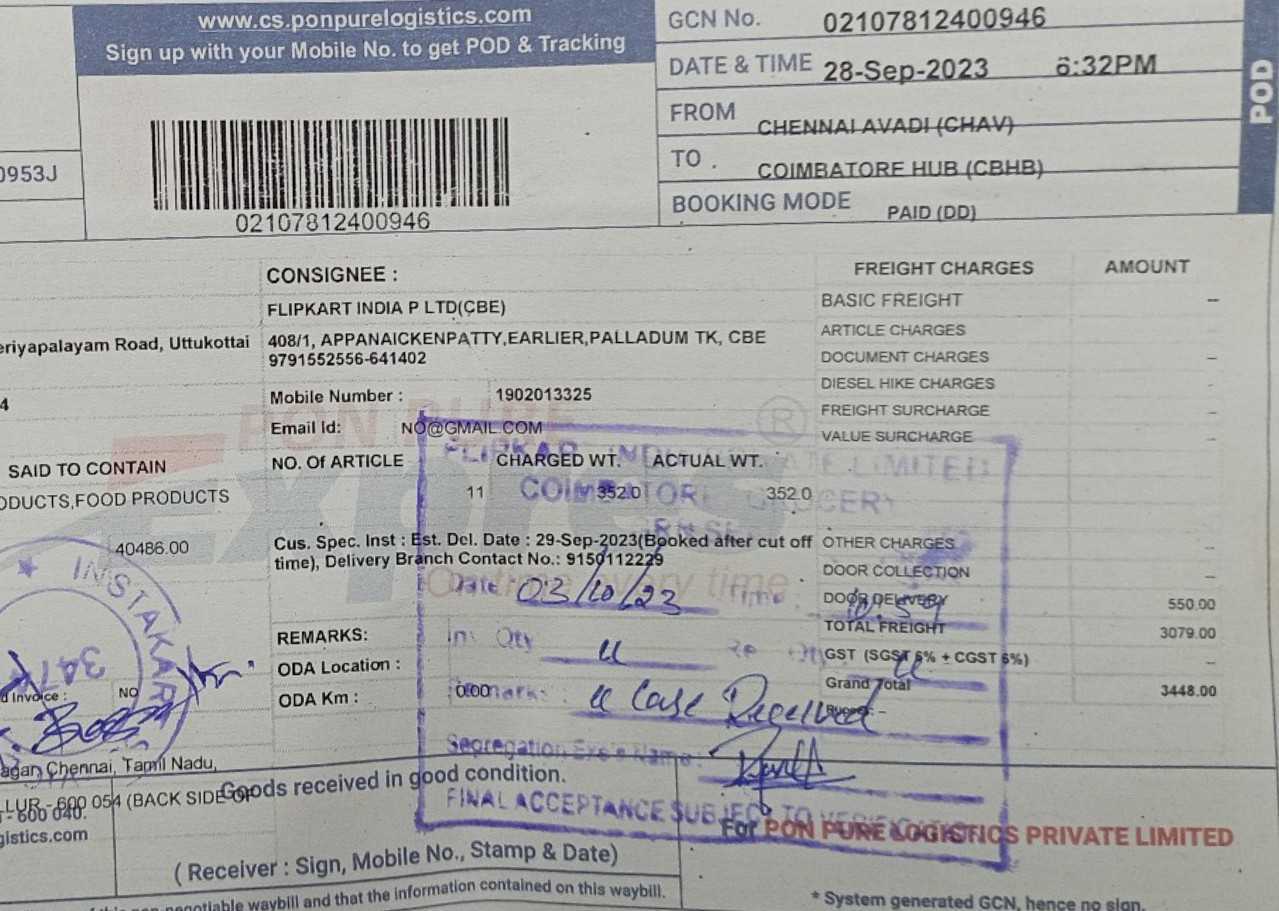 www.cs.ponpurelogistics.com
Sign up with your Mobile No. to get POD & Tracking
GCN No. 02107812400946
DATE & TIME 28-Sep-2023 6:32PM
FROM CHENNAI AVADI (CHAV)
TO . COIMBATORE HUB (CBHB)
BOOKING MODE PAID (DD)
POD
0953J
02107812400946
CONSIGNEE :
FLIPKART INDIA P LTD(CBE)
eriyapalayam Road, Uttukottai
408/1, APPANAICKENPATTY,EARLIER,PALLADUM TK, CBE
9791552556-641402
4
Mobile Number : 1902013325
Email Id: NO@GMAIL.COM
SAID TO CONTAIN
NO. Of ARTICLE CHARGED WT. ACTUAL WT.
ODUCTS,FOOD PRODUCTS
11 352.0 352.0
40486.00
Cus. Spec. Inst : Est. Del. Date : 29-Sep-2023(Booked after cut off
time), Delivery Branch Contact No.: 9150112229
REMARKS:
ODA Location :
ODA Km : 0.00
FREIGHT CHARGES AMOUNT
BASIC FREIGHT --
ARTICLE CHARGES
DOCUMENT CHARGES --
DIESEL HIKE CHARGES -
FREIGHT SURCHARGE -
VALUE SURCHARGE -
OTHER CHARGES --
DOOR COLLECTION --
DOOR DELIVERY 550.00
TOTAL FREIGHT 3079.00
GST (SGST 6% + CGST 6%) --
Grand Total 3448.00
Rupees: --
PON PURE
Express
®
On time every time
COIMBATORE GROCERY
Date 03/10/23 Time
In: Qty 11
Remarks: 11 Case Received
Segregation Exe's Name:
FINAL ACCEPTANCE SUBJECT TO VERIFICATION
INSTAKAR
347
d Invoice : NO
agan, Chennai, Tamil Nadu,
LUR - 600 054 (BACK SIDE OF
- 600 040.
gistics.com
Goods received in good condition.
( Receiver : Sign, Mobile No., Stamp & Date)
For PON PURE LOGISTICS PRIVATE LIMITED
negotiable waybill and that the information contained on this waybill.
* System generated GCN, hence no sign.